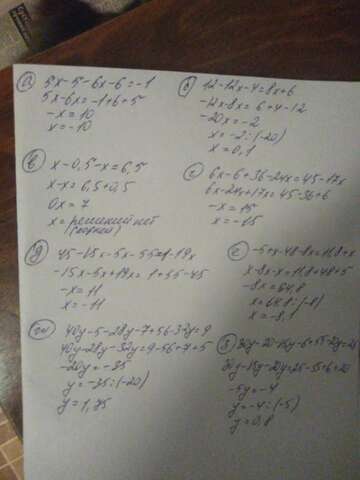 а) 5x-5-6x-6=-1
5x-6x=-1+6+5
-x=10
x=-10
б) 12-12x-4=8x+6
-12x-8x=6+4-12
-20x=-2
x=-2:(-20)
x=0,1
в) x-0,5-x=6,5
x-x=6,5+0,5
0x=7
x=решений нет
(корней)
г) 6x-6+36-24x=45-17x
6x-24x+17x=45-36+6
-x=15
x=-15
д) 45-15x-5x-55=1-19x
-15x-5x+19x=1+55-45
-x=11
x=-11
е) -5+x-48-8x=11,8+x
x-8x-x=11,8+48+5
-8x=64,8
x=64,8:(-8)
x=-8,1
ж) 40y-5-28y-7+56-32y=9
40y-28y-32y=9-56+7+5
-20y=-35
y=-35:(-20)
y=1,75
з)
-5y=-4
y=-4:(-5)
y=0,8